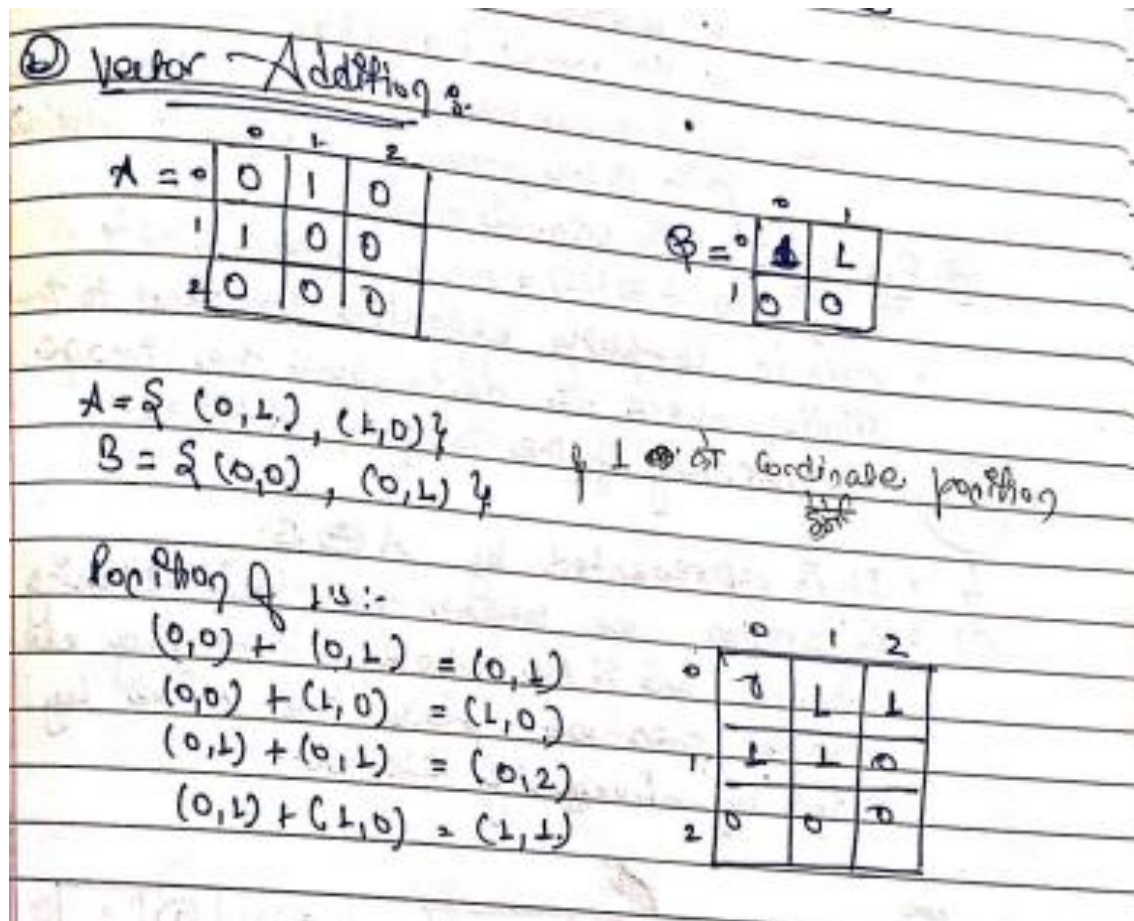 ② Vector Addition :-
0 1 2
A = 0 0 1 0
1 1 0 0
2 0 0 0
0 1
B = 0 1 1
1 0 0
A = { (0,1), (1,0) }
B = { (0,0), (0,1) } 1 का Cordinate position
Position of 1 is :-
(0,0) + (0,1) = (0,1)
(0,0) + (1,0) = (1,0)
(0,1) + (0,1) = (0,2)
(0,1) + (1,0) = (1,1)
0 1 2
0 0 1 1
1 1 1 0
2 0 0 0